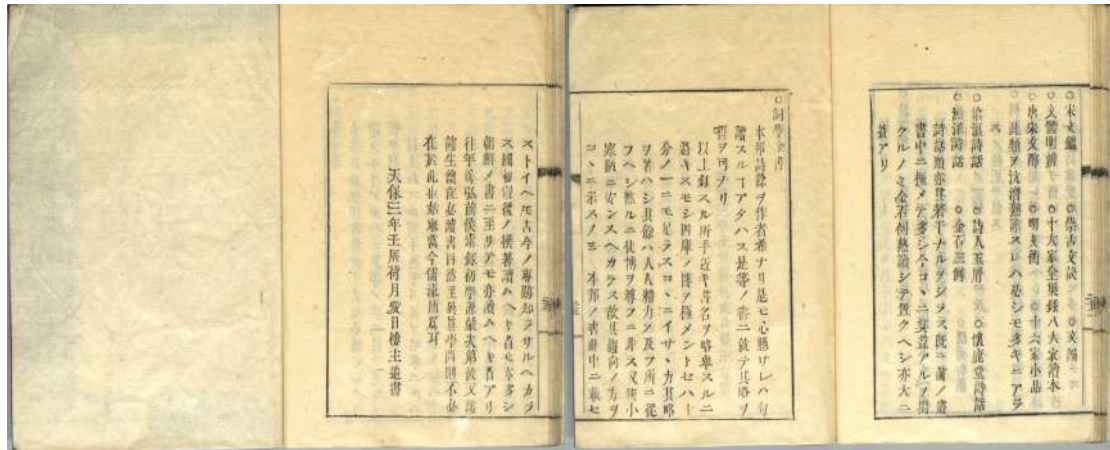 ○宋文鑑 ○崇古文訣 ○文
○文體明辨 ○十大家全集錄八大家讀本
○唐宋文醇 ○明文衡 ○十六家小品
此類ヲ沈潛熟讀スレハ必シモ多キニアラ
ス
○滄浪詩話 ○詩人玉屑 ○懷麓堂詩話
○漁洋詩話 ○金石三例
詩話類亦其若干ナルヲシラス既ニ前ノ叢
書中ニ極メテ多シ今コヽニ
クルノミ金石例熟讀シテ置クヘシ亦大ニ
益アリ
○詞學全書
本邦詩餘ヲ作者希ナリ是モ心懸サレハ
贈スルヿアタハス是等ノ書ニ就テ其略ヲ
ヲ可ナリ
以上錄スル所手近キ書名ヲ略舉スルニ
スモシ四庫ノ博ヲ極メントセハ十
分ノ一ニモ足ラスコヽニイサヽカ其略
ヲ著ハシ其餘ハ人人精力ノ及フ所ニ從
フヘシ然ルニ徒博ヲ尊フニ非ス又狹小
寒陋ニ安ンスヘカラス故其趨向ノ方ヲ
コヽニ示スノミ 本邦ノ書此中ニ載セ
ストイヘ𪜈古今ノ事跡知ラサルヘカラ
ス國初官後ノ撰著讀ムヘキ者モ亦多シ
朝鮮ノ書ニ至リテモ亦讀ムヘキ者アリ
往年爲弘前侯索錄初學課業次第後又
諸生讀宜必讀書目 至於其學問則不必
在於此也姑應當今儒流所爲耳
天保三年壬辰荷月 日樓主並書